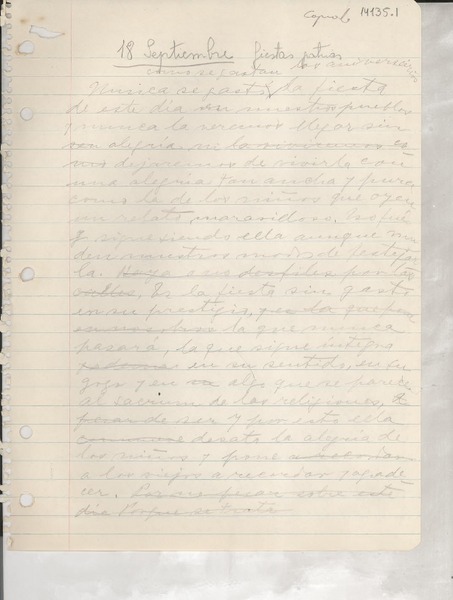 14135.1
18 Septiembre fiestas patrias
como se gastan los aniversarios
Nunca se gastó la fiesta
de este día en nuestros pueblos
y nunca la veremos llegar sin
alegría ni
dejaremos de vivirla con
una alegría tan ancha y pura
como la de los niños que oyen
un relato maravilloso. Lo fué
y sigue siendo ella aunque mu
den nuestros modos de festejar
la. Haya o no desfiles por las
calles, Es la fiesta sin gasto
en su prestigio,
la que nunca
pasará, la que sigue íntegra
en su sentido, en su
gozo y en algo que se parece
al sacrum de las religiones,
de ser y por esto ella
desata la alegría de
los niños y pone
a los viejos a recordar y agrade
cer. sobre este
día Porque se trata